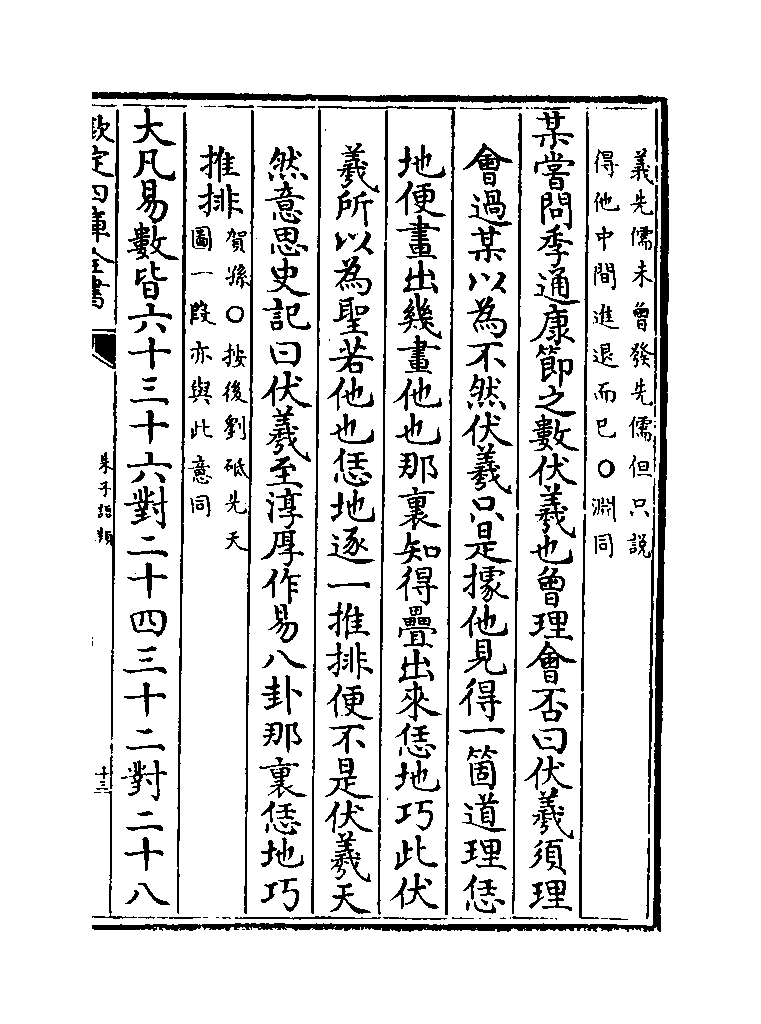 義先儒未曾發先儒但只説
得他中間進退而已○淵同
某嘗問季通康節之數伏羲也曾理會否曰伏羲須理
會過某以為不然伏羲只是據他見得一箇道理恁
地便畫出幾畫他也那裏知得疊出來恁地巧此伏
羲所以為聖若他也恁地逐一推排便不是伏羲天
然意思史記曰伏羲至淳厚作易八卦那裏恁地巧
推排
賀孫○按後劉砥先天
圖一段亦與此意同
大凡易數皆六十三十六對二十四三十二對二十八
欽定四庫全書
朱子語類
十三